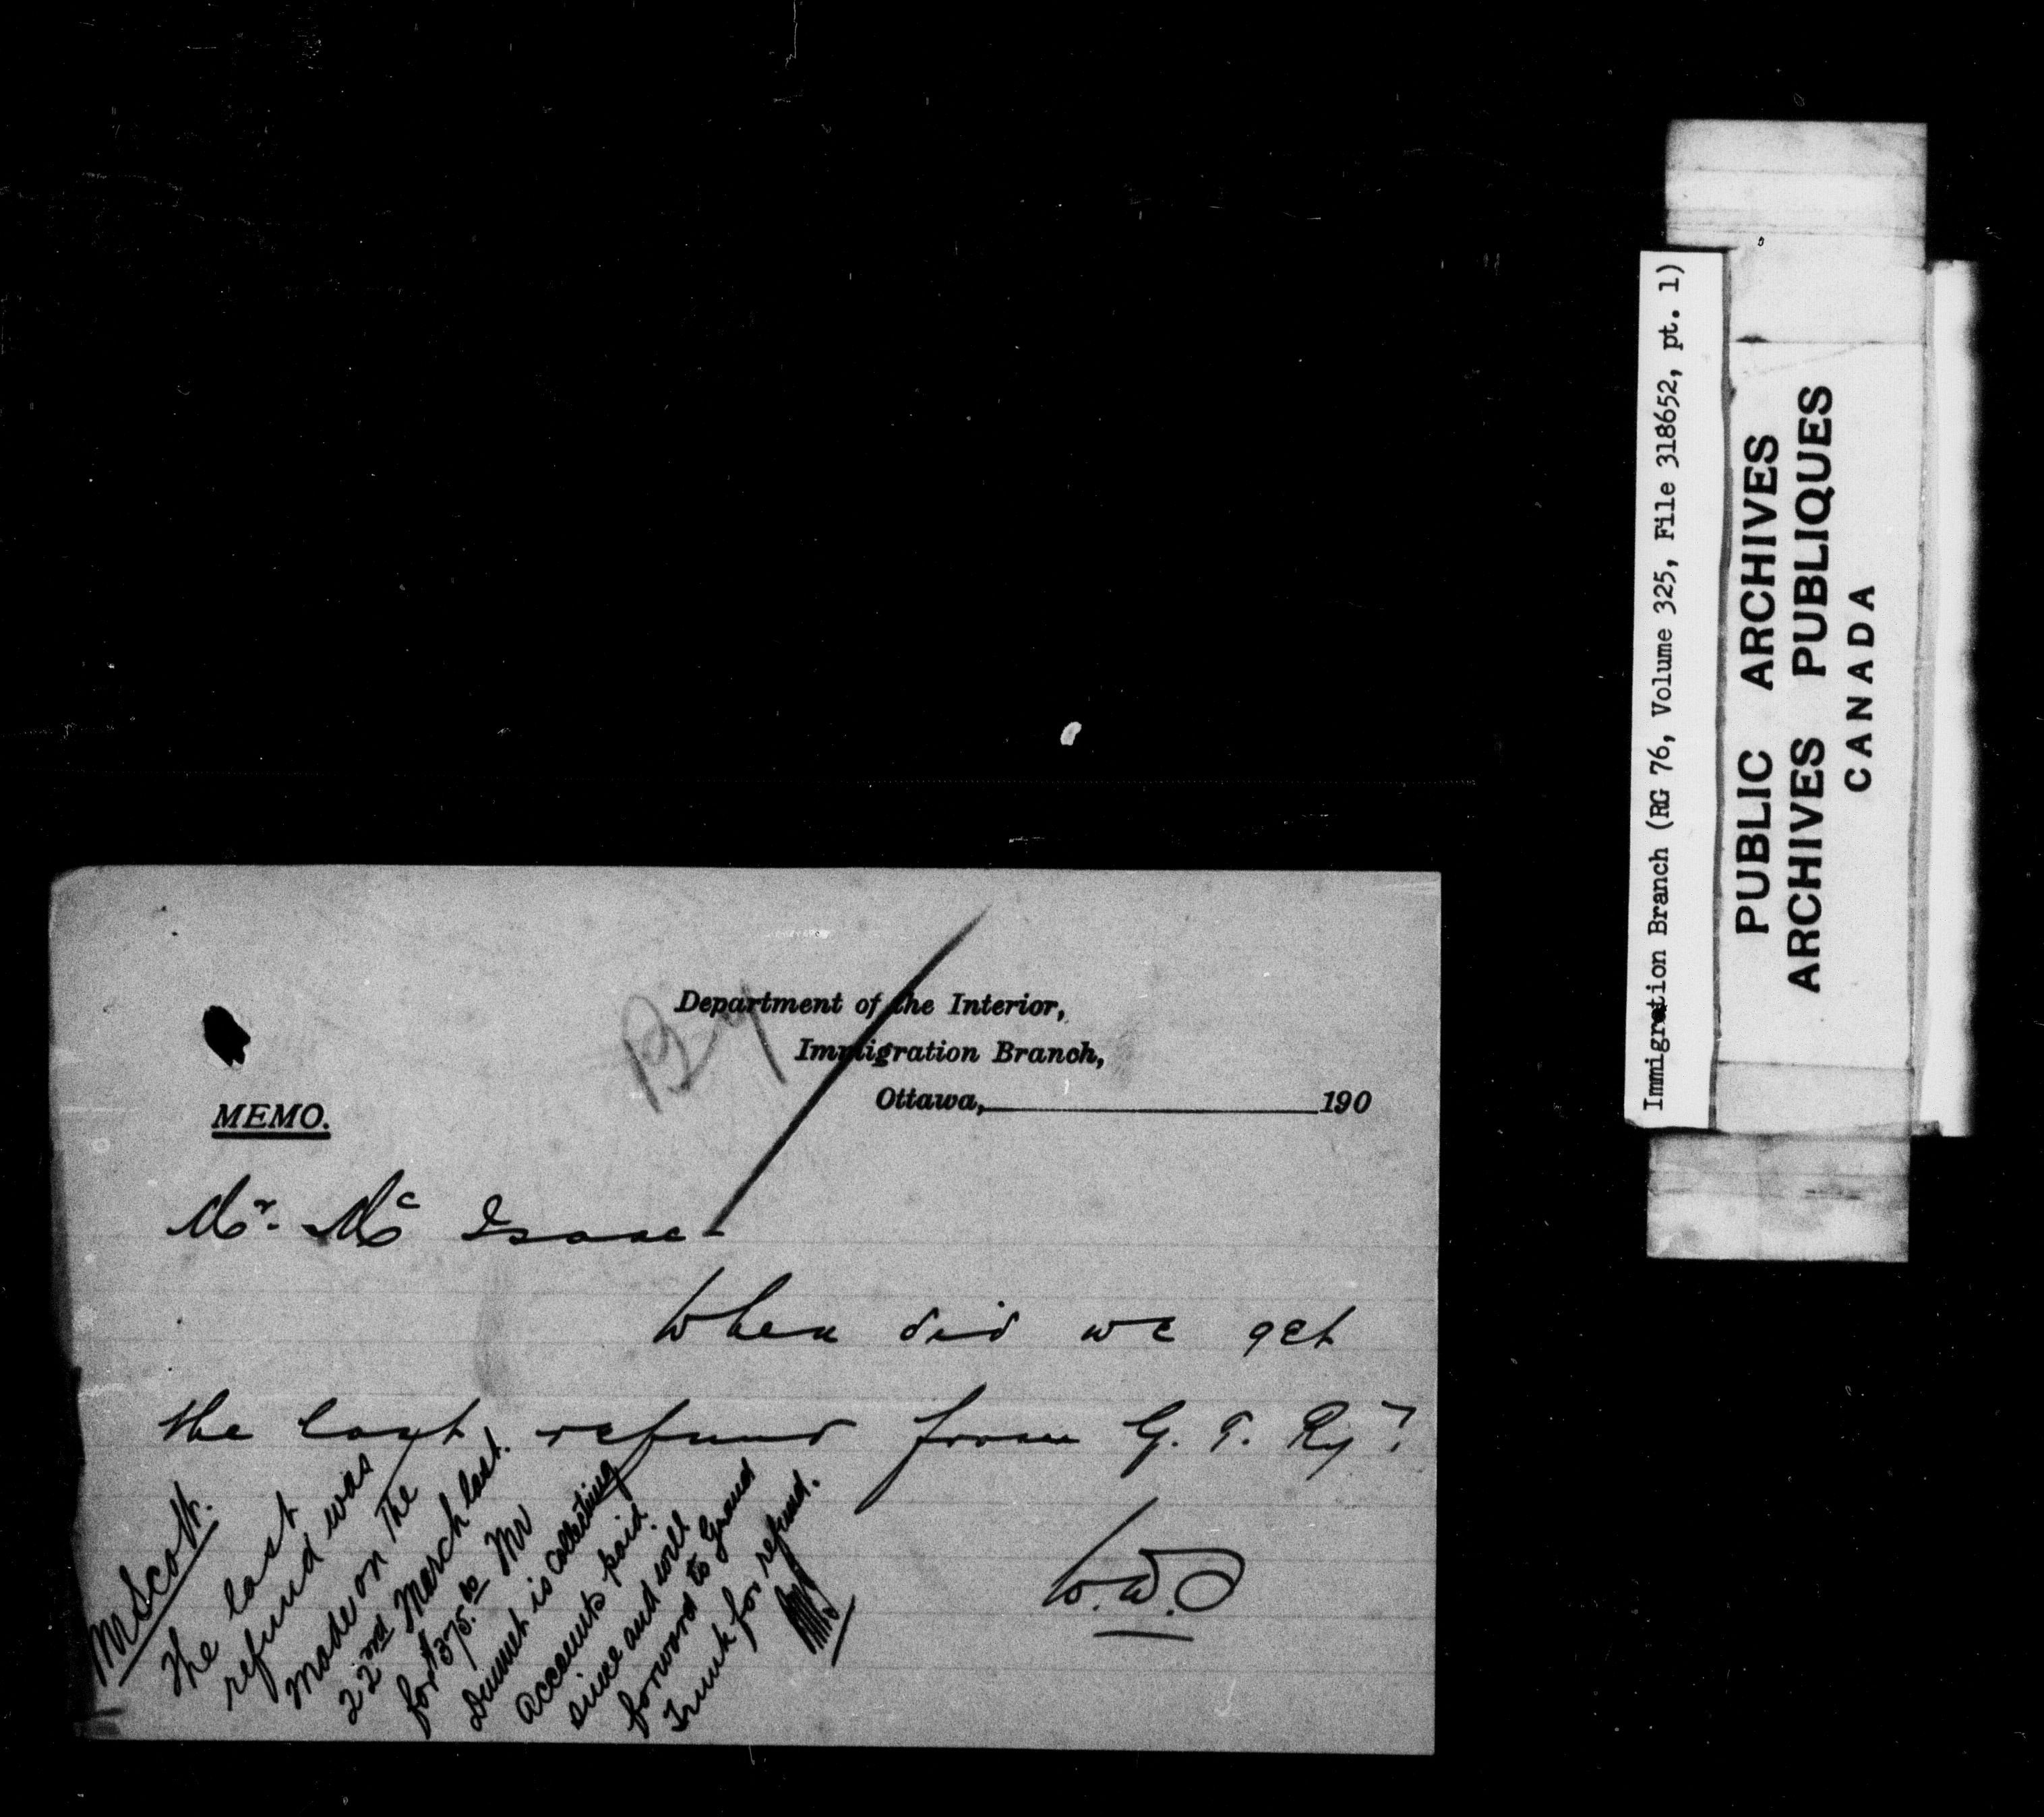 Department of the Interior,
Immigration Branch,
Ottawa, 190
MEMO.
By
Mr. Mc Isaac
When did we get
the last refund from G. T. Ry?
W.W.S
Mr Scott.
The last
refund was
made on the
22nd March last.
for $375.00 Mr
is collecting
accounts paid
since and will
forward to Grand
Trunk for refund.
Immigration Branch (RG 76, Volume 325, File 318652, pt. 1)
PUBLIC ARCHIVES
ARCHIVES PUBLIQUES
CANADA